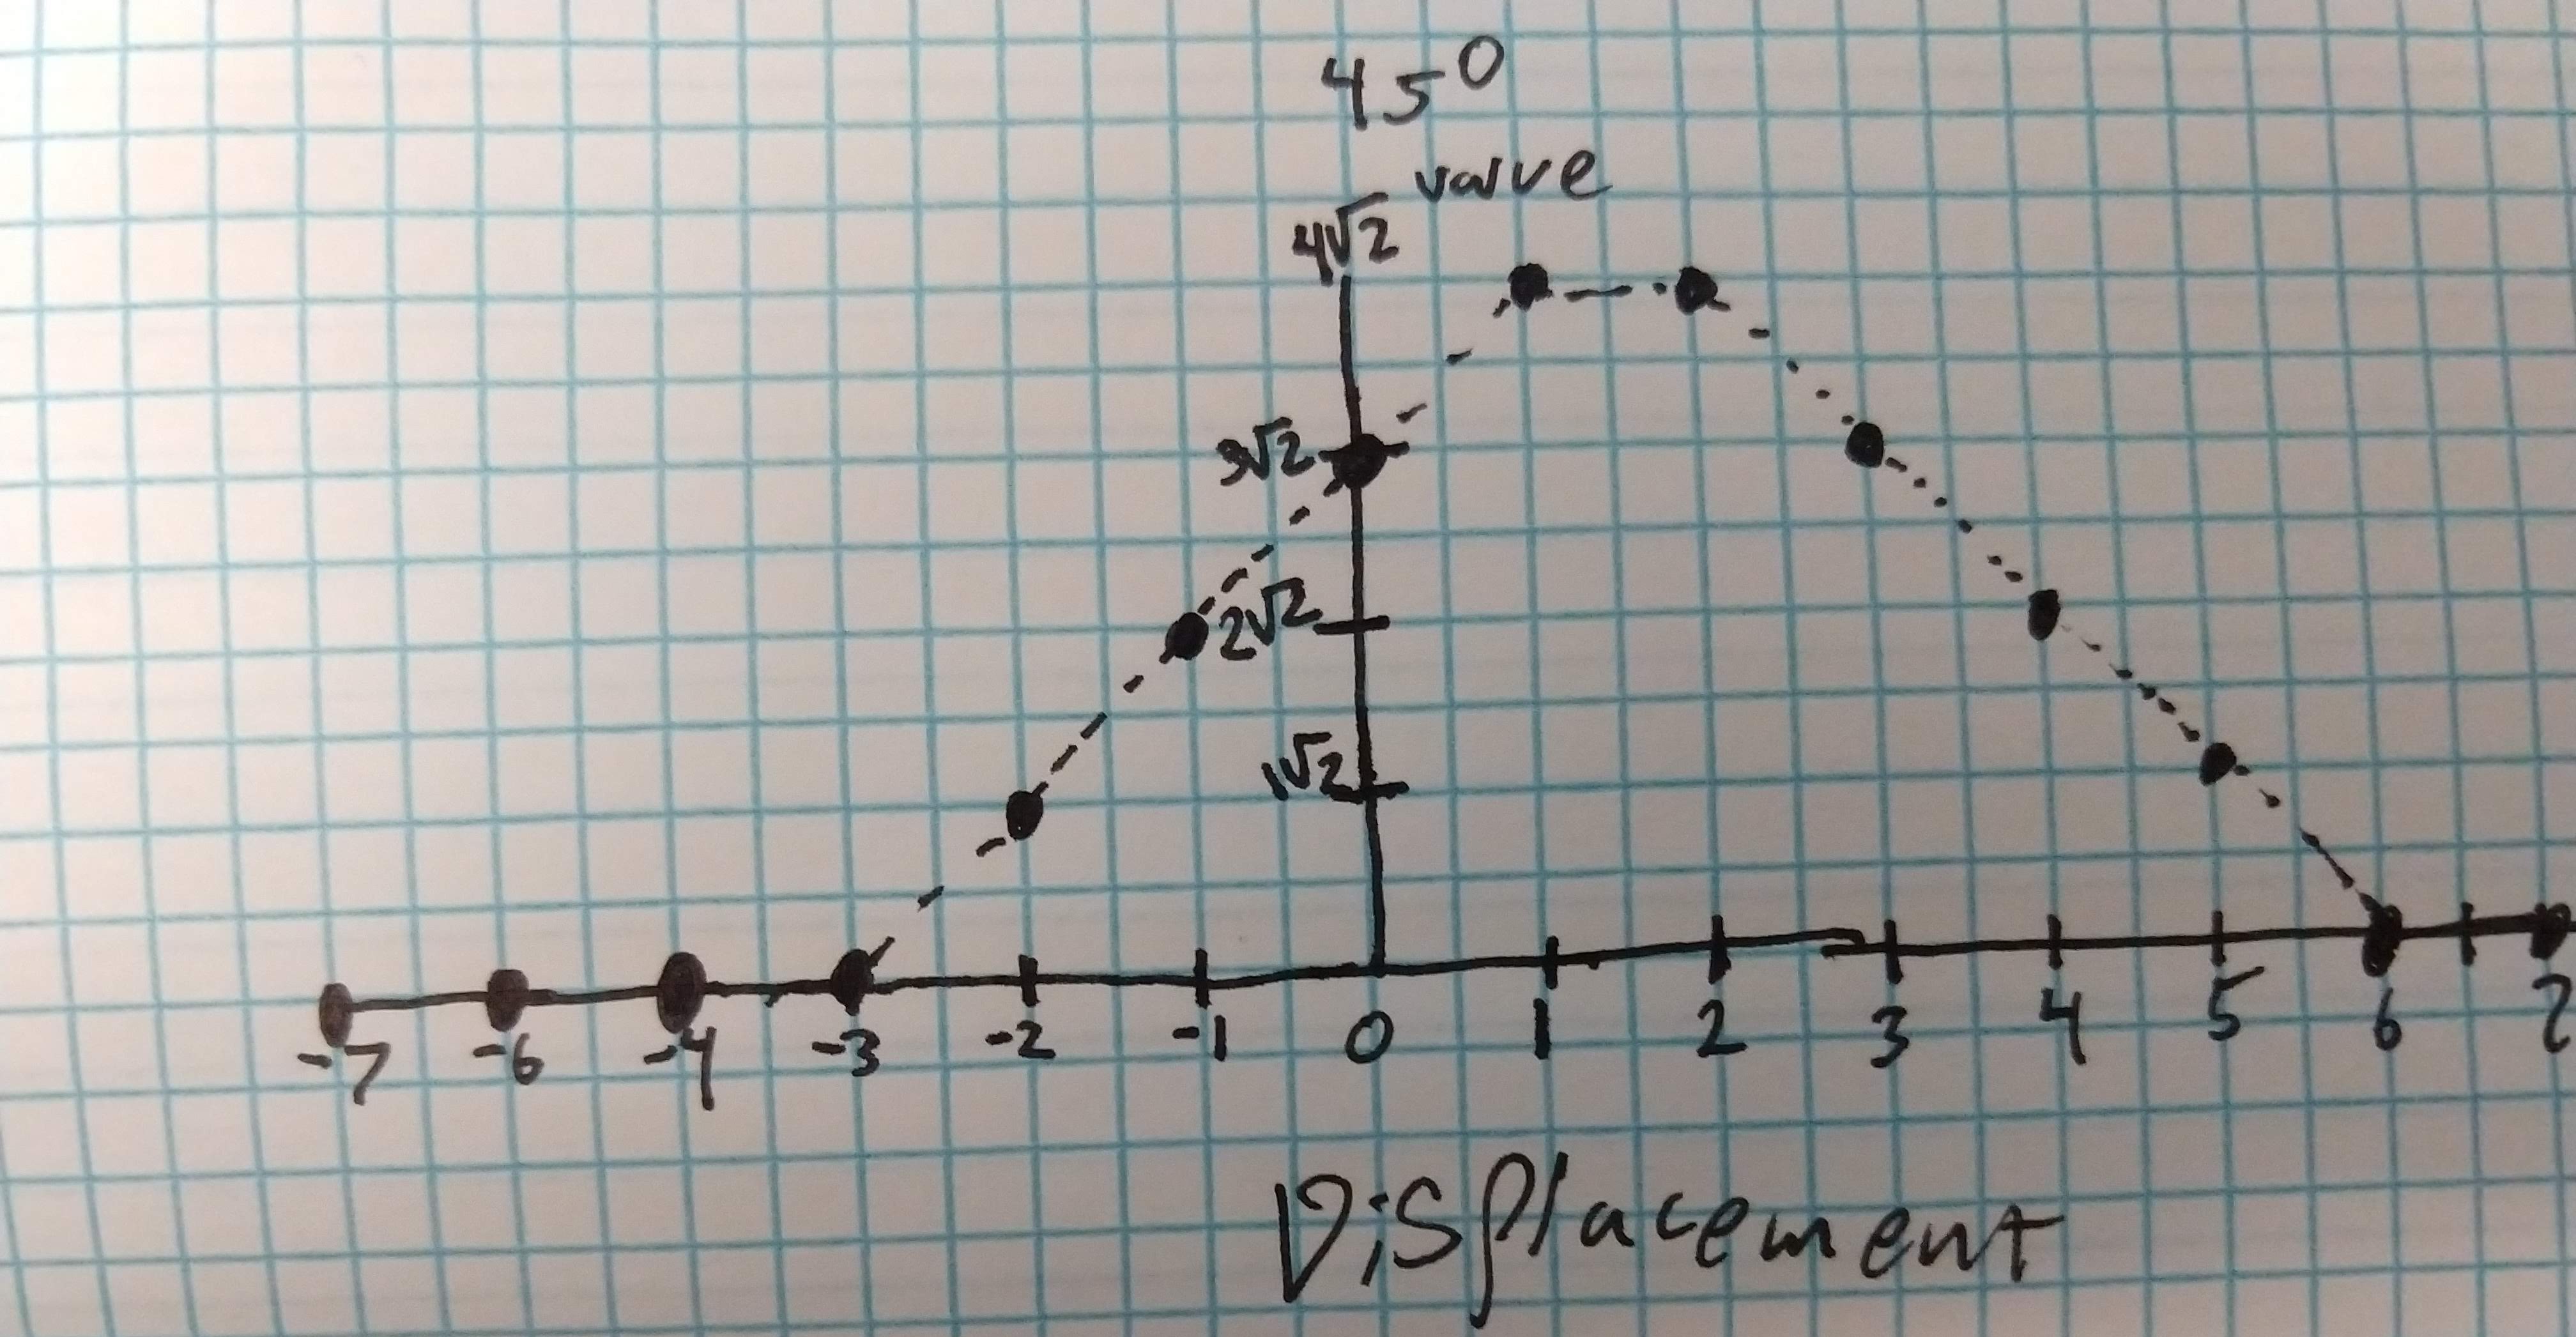 45°
value
4√2
3√2
2√2
1√2
-7 -6 -4 -3 -2 -1 0 1 2 3 4 5 6 7
Displacement